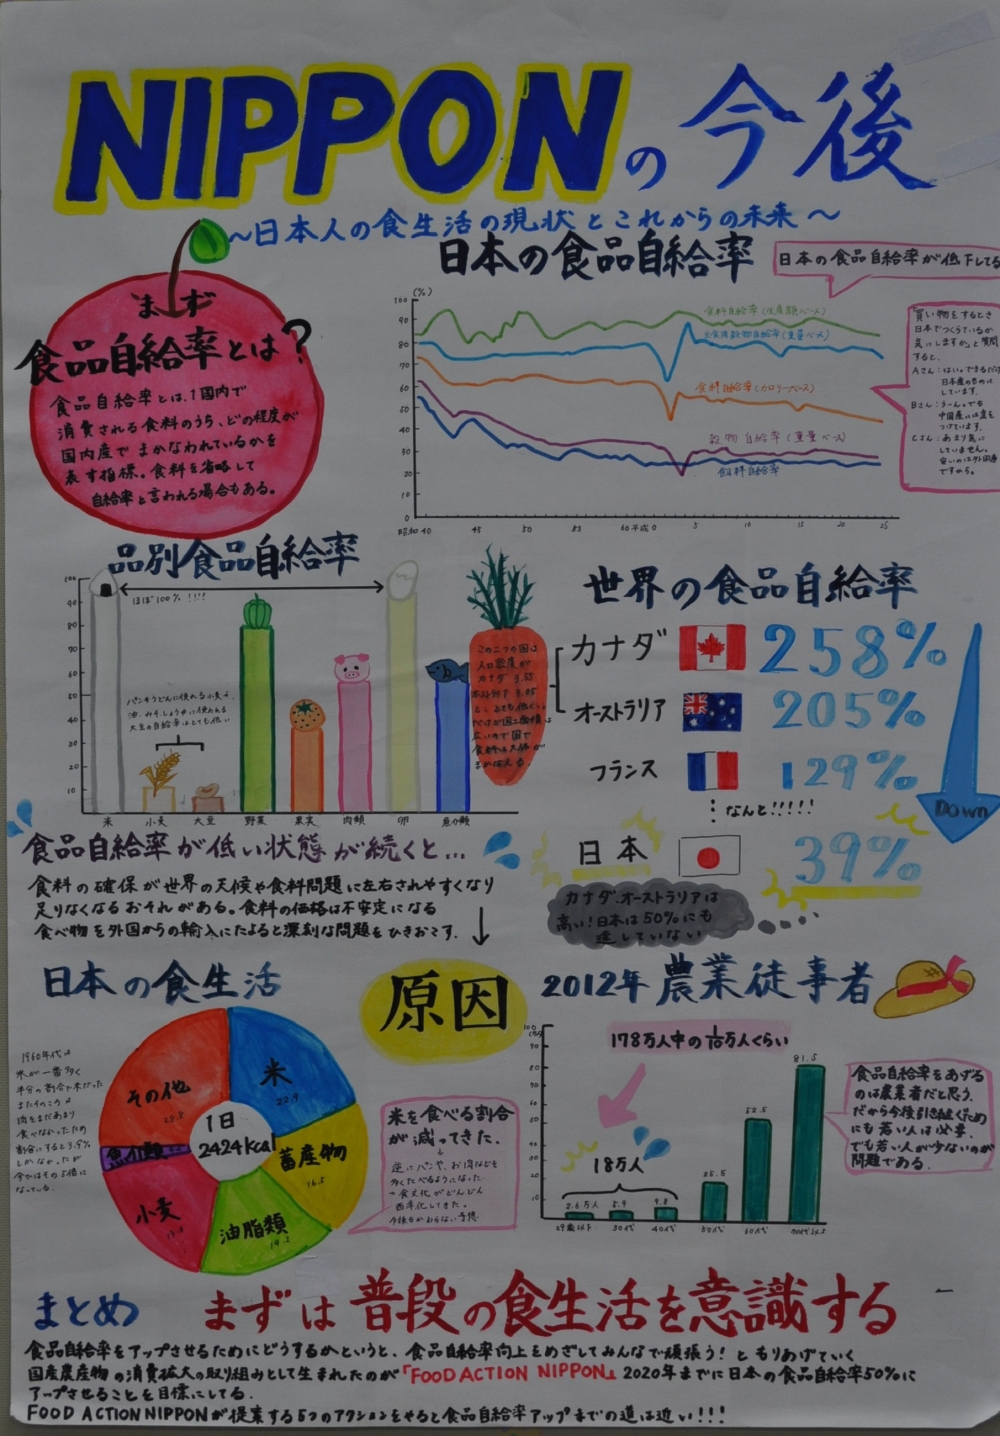 NIPPONの今後
～日本人の食生活の現状とこれからの未来～
まず
食品自給率とは?
食品自給率とは、1国内で
消費される食料のうち、どの程度が
国内産でまかなわれているかを
表す指標。食料を省略して
自給率と言われる場合もある。
日本の食品自給率
日本の食品自給率が低下してる
(%)
100
90
80
60
50
40
30
20
10
0
食料自給率(生産額ベース)
主食用穀物自給率(重量ベース)
食料自給率(カロリーベース)
穀物自給率(重量ベース)
飼料自給率
昭和40 45 50 55 60 平成0 5 10 15 20 25
買い物をするとき
日本でつくっているか
気にしますか?と質問
すると、
Aさん:はい。できるだけ
日本産のものに
しています。
Bさん:うーん。でも
中国産には気を
つけています。
Cさん:あまり気に
していません。
安いのは外国産
ですから。
品別食品自給率
100
90
80
70
60
50
40
30
20
10
ほぼ100%!!!!
パンやうどんに使われる小麦や、
油、みそ、しょうゆに使われる
大豆の自給率はとても低い
米 小麦 大豆 野菜 果実 肉類 卵 魚介類
この二つの国は
人口密度が
カナダ 3.55
と、とても低く、
だけど国土面積は
広いので国で
世界の食品自給率
カナダ 258%
オーストラリア 205%
フランス 129%
なんと!!!!!
日本 39%
Down
カナダ、オーストラリアは
高い!日本は50%にも
達していない
食品自給率が低い状態が続くと…
食料の確保が世界の天候や食料問題に左右されやすくなり
足りなくなるおそれがある。食料の価格は不安定になる
食べ物を外国からの輸入にたよると深刻な問題をひきおこす.
日本の食生活
原因
1960年代は
米が一番多く
半分の割合を米だった
またそのころは
肉をまだあまり
食べなかったため
割合にすると3.9%
しかなかったが
今ではその5倍に
なっている.
1日
2424kcal
米
22.9
畜産物
16.5
油脂類
14.2
小麦
魚介類
その他
米を食べる割合
が減ってきた.
↓
逆にパンや、お肉などを
多くたべるようになった
食文化がどんどん
西洋化してきた。
今後もかわらない予想.
2012年 農業従事者
178万人中の1/10万人くらい
18万人
100
90
80
70
60
50
40
30
20
10
2.6万人 5.9 9.8 25.5 52.5 81.5
29歳以下 30代 40代 50代 60代 70代以上
食品自給率をあげる
のは農業者だと思う.
だから今後引き継ぐため
にも若い人は必要.
でも若い人が少ないのが
問題である.
まとめ まずは普段の食生活を意識する
食品自給率をアップさせるためにどうするかというと、食品自給率向上をめざしてみんなで頑張う!ともりあげていく
国産農産物の消費拡大の取り組みとして生まれたのが「FOOD ACTION NIPPON」2020年までに日本の食品自給率50%に
アップさせることを目標にしてる.
FOOD ACTION NIPPONが提案する5つのアクションをやると食品自給率アップまでの道は近い!!!